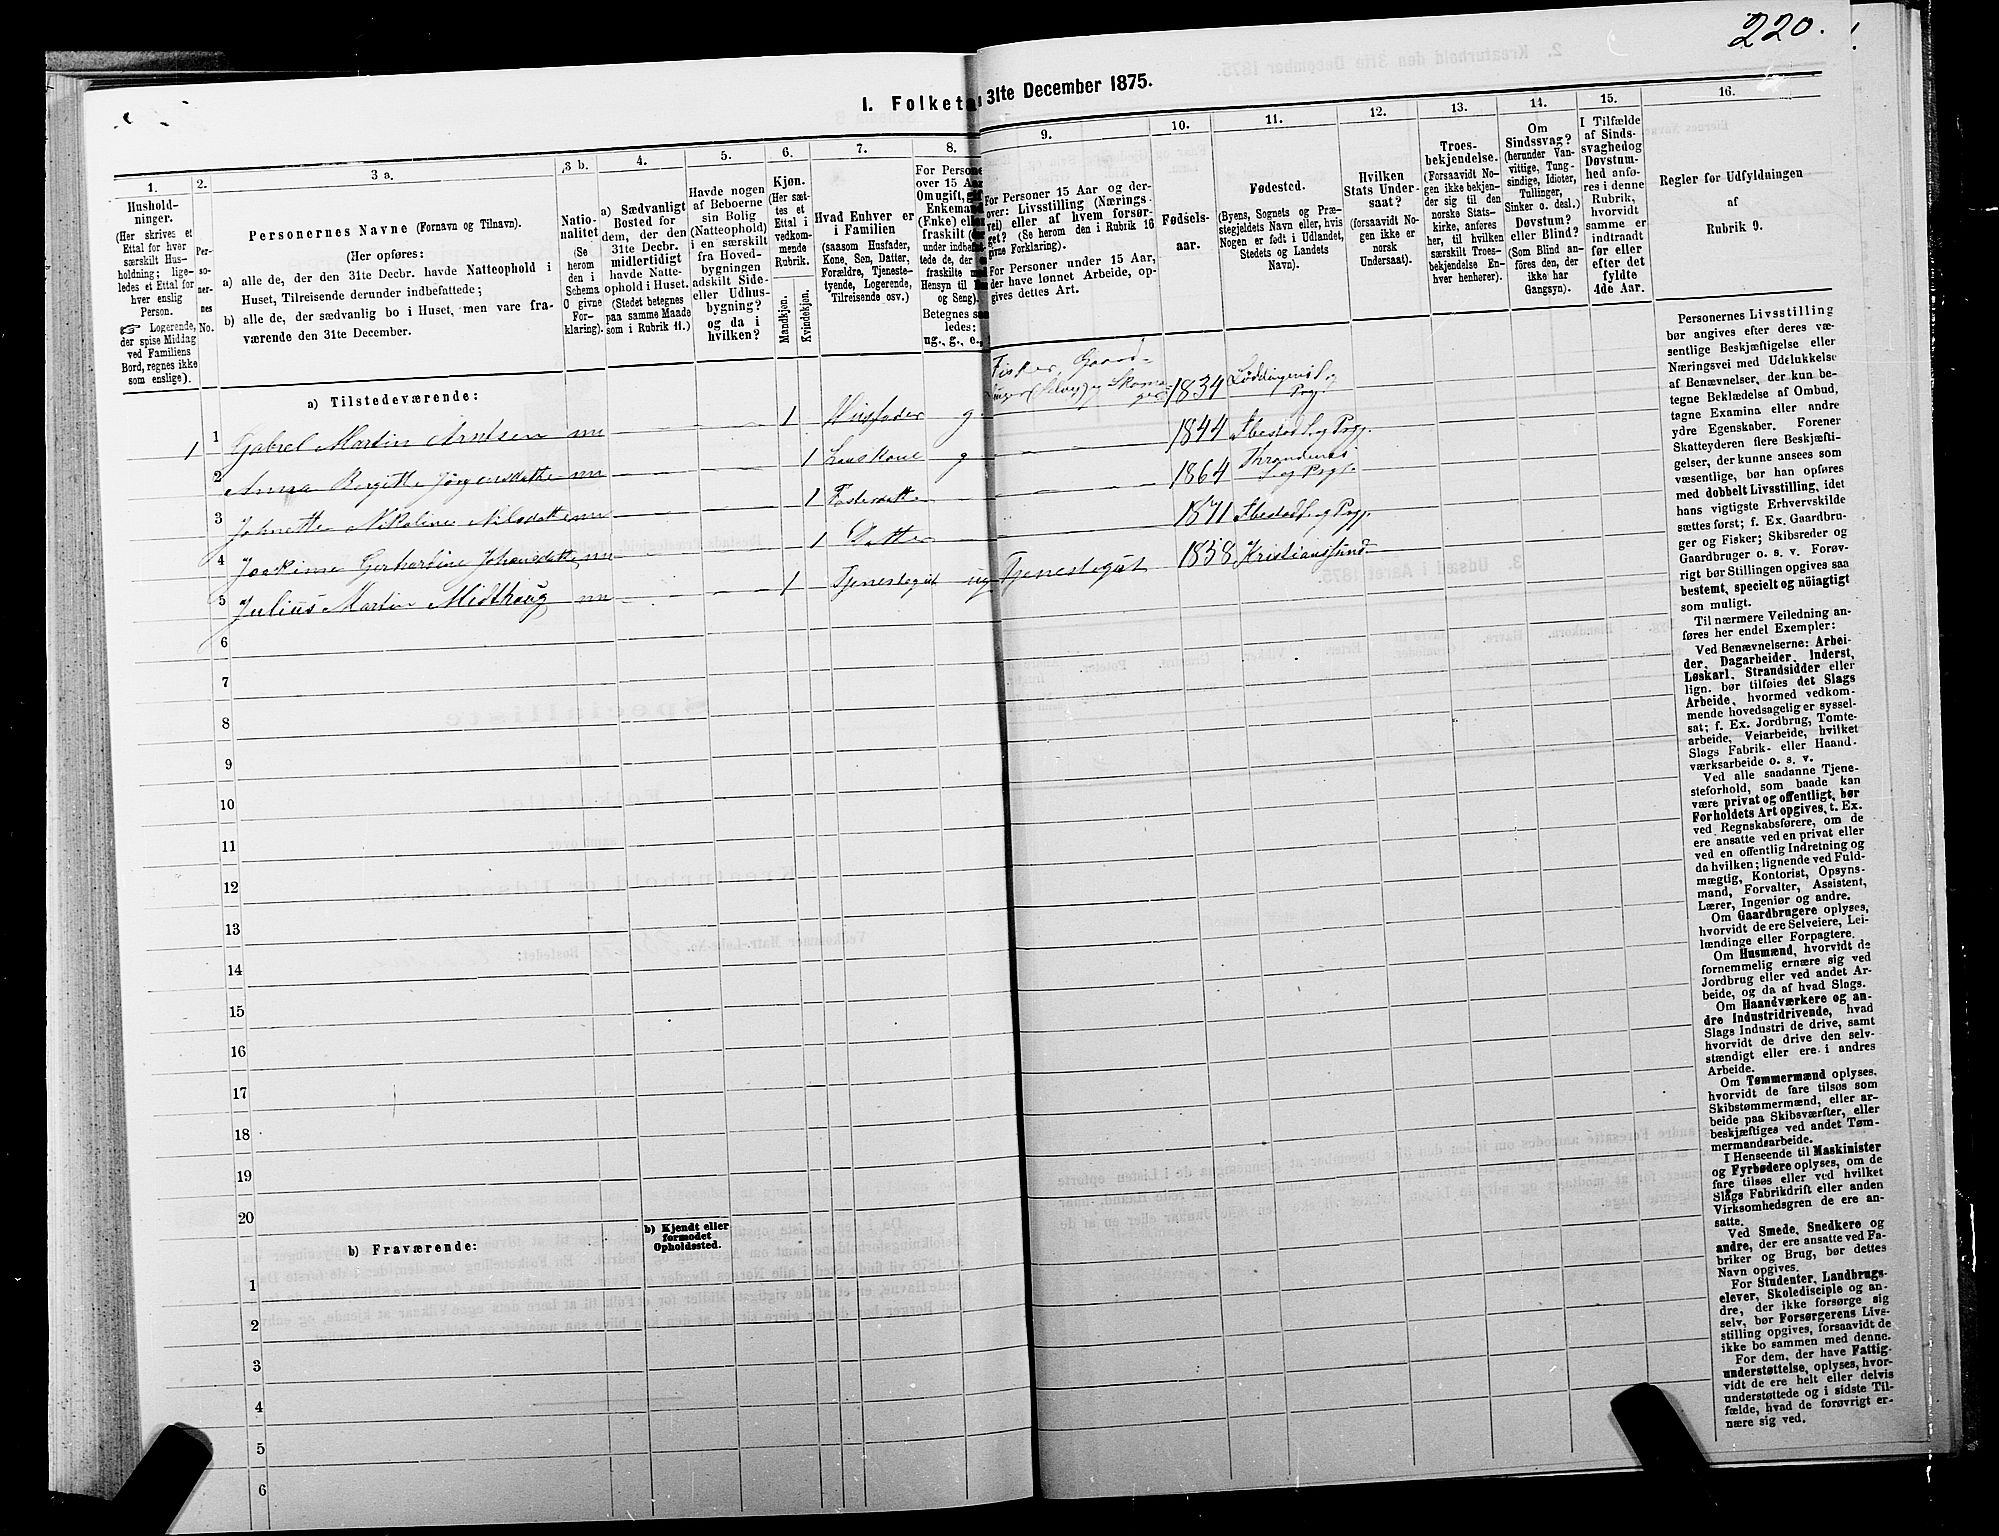 220.
I. Folketa
31te December 1875.
1.
2.
3 a.
3 b.
4.
5.
6.
7.
8.
9.
10.
11.
12.
13.
14.
15.
16.
Hushold-
ninger.
(Her skrives et
Ettal for hver
særskilt Hus-
holdning; lige-
ledes et Ettal for
hver enslig
Person.
☞ Logerende,
der spise Middag
ved Familiens
Bord, regnes ikke
som enslige).
Per-
so-
ner-
nes
No.
Personernes Navne (Fornavn og Tilnavn).
(Her opføres:
a) alle de, der den 31te Decbr. havde Natteophold i
Huset, Tilreisende derunder indbefattede;
b) alle de, der sædvanlig bo i Huset, men vare fra-
værende den 31te December.
Natio-
nalitet
(Se
herom
den i
Schema
O givne
For-
klaring).
a) Sædvanligt
Bosted for
dem, der den
31te Decbr.
midlertidigt
havde Natte-
ophold i Huset.
(Stedet betegnes
paa samme Maade
som i Rubrik 11.)
Havde nogen
af Beboerne
sin Bolig
(Natteophold)
i en særskilt
fra Hoved-
bygningen
adskilt Side-
eller Udhus-
bygning?
og da i
hvilken?
Kjøn.
(Her sæt-
tes et
Ettal i
vedkom-
mende
Rubrik.
Mandkjøn.
Kvindekjøn.
Hvad Enhver er
i Familien
(saasom Husfader,
Kone, Søn, Datter,
Forældre, Tjeneste-
tyende, Logerende,
Tilreisende osv.)
For Persone
over 15 Aar
Om ugift, gif
Enkemand
(Enke) eller
fraskilt (
under indbefat
tede de, der
fraskilte m
Hensyn til B
og Seng).
Betegnes saa
ledes:
ug., g., e.,
For Personer 15 Aar og der-
over: Livsstilling (Nærings-
vei) eller af hvem forsør-
get? (Se herom den i Rubrik 16
givne Forklaring).
For Personer under 15 Aar,
der have lønnet Arbeide, op-
gives dettes Art.
Fødsels-
aar.
Fødested.
(Byens, Sognets og Præ-
stegjeldets Navn eller, hvis
Nogen er født i Udlandet,
Stedets og Landets
Navn).
Hvilken
Stats Under-
saat?
(forsaavidt No-
gen ikke er
norsk
Undersaat).
Troes-
bekjendelse.
(Forsaavidt No-
gen ikke bekjen-
der sig til den
norske Stats-
kirke, anføres
her, til hvilken
særskilt Troes-
bekjendelse En-
hver henhører).
Om
Sindssvag?
(herunder Van-
vittige, Tung-
sindige, Idioter,
Tullinger,
Sinker o. desl.)
Døvstum?
eller Blind?
(Som Blind an-
føres den, der
ikke har
Gangsyn).
I Tilfælde
af Sinds-
svaghed og
Døvstum-
hed anfø-
res i denne
Rubrik,
hvorvidt
samme er
indtraadt
før eller
efter det
fyldte
4de Aar.
Regler for Udfyldningen
af
Rubrik 9.
a) Tilstedeværende:
1 1 Gabrel Martin Arntsen nn 1 Husfader g Fisker, Gaard-
bruger (Selvej) og Skoma-
ger 1834 Løddingens S. og
Prgj.
2 Anna Bergitte Jørgensdatte nn 1 hans Kone g 1844 Ibestad S. og Prgj.
3 Johnette Nikoline Nilsdatte nn 1 Fosterdatte 1864 Throndenes
S. og Prgj.
4 Joakime Gerhardine Johansdatte nn 1 Datte 1871 Ibestad S. og Prgj.
5 Julius Martin Midthaug nn 1 Tjenestegut ug Tjenestegut 1858 Kristianssund
6
7
8
9
10
11
12
13
14
15
16
17
18
19
20
b) Fraværende:
b) Kjendt eller
formodet
Opholdssted.
1
2
3
4
5
6
Personernes Livsstilling
bør angives efter deres væ-
sentlige Beskjæftigelse eller
Næringsvei med Udelukkelse
af Benævnelser, der kun be-
tegne Beklædelse af Ombud,
tagne Examina eller andre
ydre Egenskaber. Forener
Skatteyderen flere Beskjæfti-
gelser, der kunne ansees som
væsentlige, bør han opføres
med dobbelt Livsstilling, idet
hans vigtigste Erhvervskilde
sættes først; f. Ex. Gaardbru-
ger og Fisker; Skibsreder og
Gaardbruger o. s. v. Forøv-
rigt bør Stillingen opgives saa
bestemt, specielt og nøiagtigt
som muligt.
Til nærmere Veiledning an-
føres her endel Exempler:
Ved Benævnelserne: Arbei-
der, Dagarbeider, Inderst,
Løskarl, Strandsidder eller
lign. bør tilføies det Slags
Arbeide, hvormed vedkom-
mende hovedsagelig er syssel-
sat; f. Ex. Jordbrug, Tomte-
arbeide, Veiarbeide, hvilket
Slags Fabrik- eller Haand-
værksarbeide o. s. v.
Ved alle saadanne Tjene-
steforhold, som baade kan
være privat og offentligt, bør
Forholdets Art opgives, t. Ex.
ved Regnskabsførere, om de
ere ansatte ved en privat eller
ved en offentlig Indretning og
da hvilken; lignende ved Fuld-
mægtig, Kontorist, Opsyns-
mand, Forvalter, Assistent,
Lærer, Ingeniør og andre.
Om Gaardbrugere oplyses,
hvorvidt de ere Selveiere, Lei-
lændinge eller Forpagtere.
Om Husmænd, hvorvidt de
fornemmelig ernære sig ved
Jordbrug eller ved andet Ar-
beide, og da af hvad Slags.
Om Haandværkere og an-
dre Industridrivende, hvad
Slags Industri de drive, samt
hvorvidt de drive den selv-
stændigt eller ere i andres
Arbeide.
Om Tømmermænd oplyses,
hvorvidt de fare tilsøs som
Skibstømmermænd, eller ar-
beide paa Skibsværfter, eller
beskjæftiges ved andet Tøm-
mermandsarbeide.
I Henseende til Maskinister
og Fyrbødere oplyses, om de
fare tilsøs eller ved hvilket
Slags Fabrikdrift eller anden
Virksomhedsgren de ere an-
satte.
Ved Smede, Snedkere og
andre, der ere ansatte ved Fa-
briker og Brug, bør dettes
Navn opgives.
For Studenter, Landbrugs-
elever, Skoledisciple og an-
dre, der ikke forsørge sig
selv, bør Forsørgerens Livs-
stilling opgives, forsaavidt de
ikke bo sammen med denne.
For dem, der have Fattig-
understøttelse, oplyses, hvor-
vidt de ere helt eller delvis
understøttede og i sidste Til-
fælde, hvad de forøvrigt er-
nære sig ved.